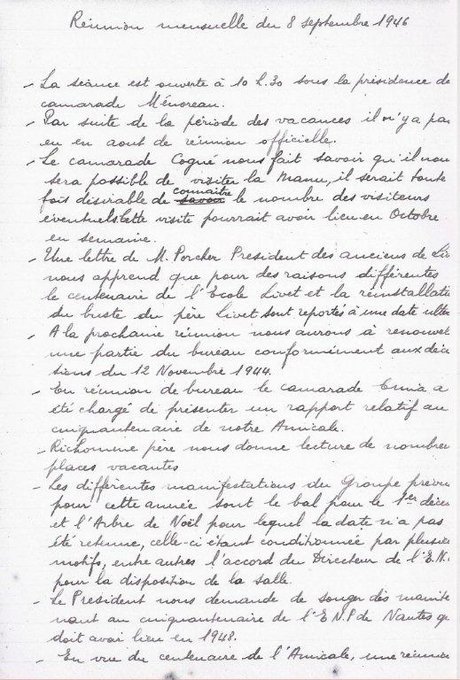 Réunion mensuelle du 8 septembre 1946
- La séance est ouverte à 10 h.30 sous la présidence de
camarade Ménoreau.
- Par suite de la période des vacances il n'y a pas
eu en aout de réunion officielle.
- Le camarade Cogné nous fait savoir qu'il nous
sera possible de visiter la Manu, il serait toute
fois désirable de savoir connaitre le nombre des visiteurs
éventuels. Cette visite pourrait avoir lieu en Octobre
en semaine.
- Une lettre de M. Porcher President des anciens de Liv
nous apprend que pour des raisons différentes
le centenaire de l'Ecole Livet et la réinstallatio
du buste du père Livet sont reportés à une date ulter
- A la prochaine réunion nous aurons à renouvel
une partie du bureau conformément aux déci
sions du 12 Novembre 1944.
- En réunion de bureau le camarade a
été chargé de présenter un rapport relatif au
cinquantenaire de notre Amicale.
- Richomme père nous donne lecture de nombreu
places vacantes
- Les différentes manifestations du Groupe prévu
pour cette année sont le bal pour le 1er déce
et l'Arbre de Noël pour lequel la date n'a pas
été retenue, celle-ci étant conditionnée par plusie
motifs, entre autres l'accord du Directeur de l'E.N.
pour la disposition de la salle.
- Le President nous demande de songer dès mainte
nant au cinquantenaire de l'E.N.P de Nantes q
doit avoir lieu en 1948.
- En vue du centenaire de l'Amicale, une réunion